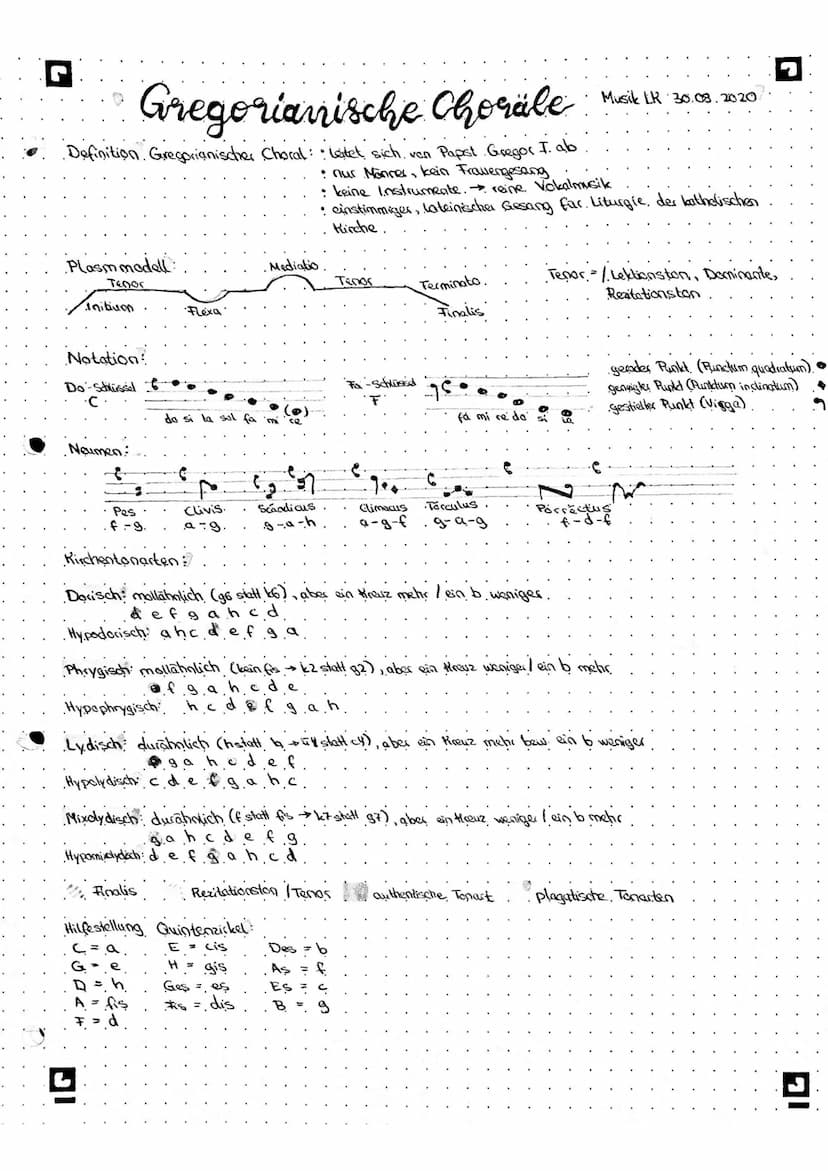 Gregorianische Choräle
Musik LK 30.09.2020
Definition Gregorianischer Choral: • leitet sich von Papst Gregor I. ab
• nur Männer, kein Frauengesang
• keine Instrumente → reine Vokalmusik
• einstimmiger, lateinischer Gesang für Liturgie der katholischen
Kirche
Plasmmodell:
Mediatio
Tenor
Tenor
Terminatio
Initium
Flexa
Finalis
Tenor = /Lektionston, Dominante,
Rezitationston
Notation:
Do-Schlüssel
C
do si la sol fa mi re
Fa-Schlüssel
F
fa mi re do si la
gerader Punkt (Punctum quadratum)
geneigter Punkt (Punktum inclinatum)
gestielter Punkt (Virga)
Neumen:
Pes Clivis Scandicus Climacus Torculus Porrectus
f-g a-g g-a-h a-g-f g-a-g f-d-f
Kirchentonarten:
Dorisch: mollähnlich (g6 statt k6), aber ein Kreuz mehr / ein b weniger
d e f g a h c d
Hypodorisch: a h c d e f g a
Phrygisch: mollähnlich (kein fis → k2 statt g2), aber ein Kreuz weniger / ein b mehr
e f g a h c d e
Hypophrygisch: h c d e f g a h
Lydisch: durähnlich (h statt b → ü4 statt r4), aber ein Kreuz mehr bzw. ein b weniger
f g a h c d e f
Hypolydisch: c d e f g a h c
Mixolydisch: durähnlich (f statt fis → k7 statt g7), aber ein Kreuz weniger / ein b mehr
g a h c d e f g
Hypomixolydisch: d e f g a h c d
Finalis Rezitationston / Tenor authentische Tonart plagatische Tonarten
Hilfestellung Quintenzirkel:
C = a E = cis Des = b
G = e H = gis As = f
D = h Ges = es Es = c
A = fis Fis = dis B = g
F = d